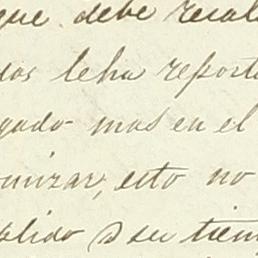 que debe recal
dos leha reporta
gado mas en el
nizar, esto no
alido a su tiem